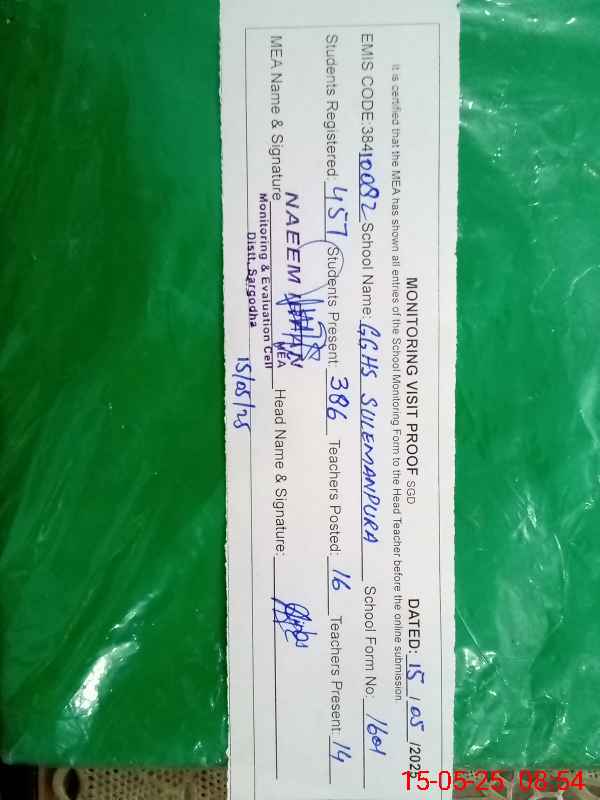 MONITORING VISIT PROOF SGD DATED: 15 / 05 /2025
It is certified that the MEA has shown all entries of the School Monitoring Form to the Head Teacher before the online submission.
EMIS CODE:38410092 School Name: GGHS SULEMANPURA School Form No: 1601
Students Registered: 457 Students Present: 386 Teachers Posted: 16 Teachers Present: 14
MEA Name & Signature Head Name & Signature:
NAEEM
MEA
Monitoring & Evaluation Cell
Distt. Sargodha
15/05/25
15-05-25 08:54